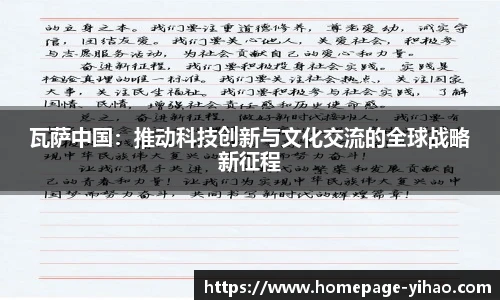 的立身之本。我们要注重道德修养，尊老爱幼，诚实守
信，团结友爱。我们要关心他人，关爱社会，积极参
与志愿服务活动，为社会贡献自己的爱心和力量。
奋进新征程，我们要积极投身社会实践。实践是
检验真理的唯一标准。我们要关注社会热点，关注国家
大事，关注民生福祉。我们要积极参与社会实践，了解
国情、民情，增强社会责任感和历史使命感。
瓦萨中国：推动科技创新与文化交流的全球战略
新征程
现中华民族伟大复兴的中国梦
让我们携手共进，
己的青春和力量！让我们为实现中华民族伟大复兴的中
国梦而努力奋斗，共同书写新时代的辉煌篇章！
https://www.homepage-yihao.com